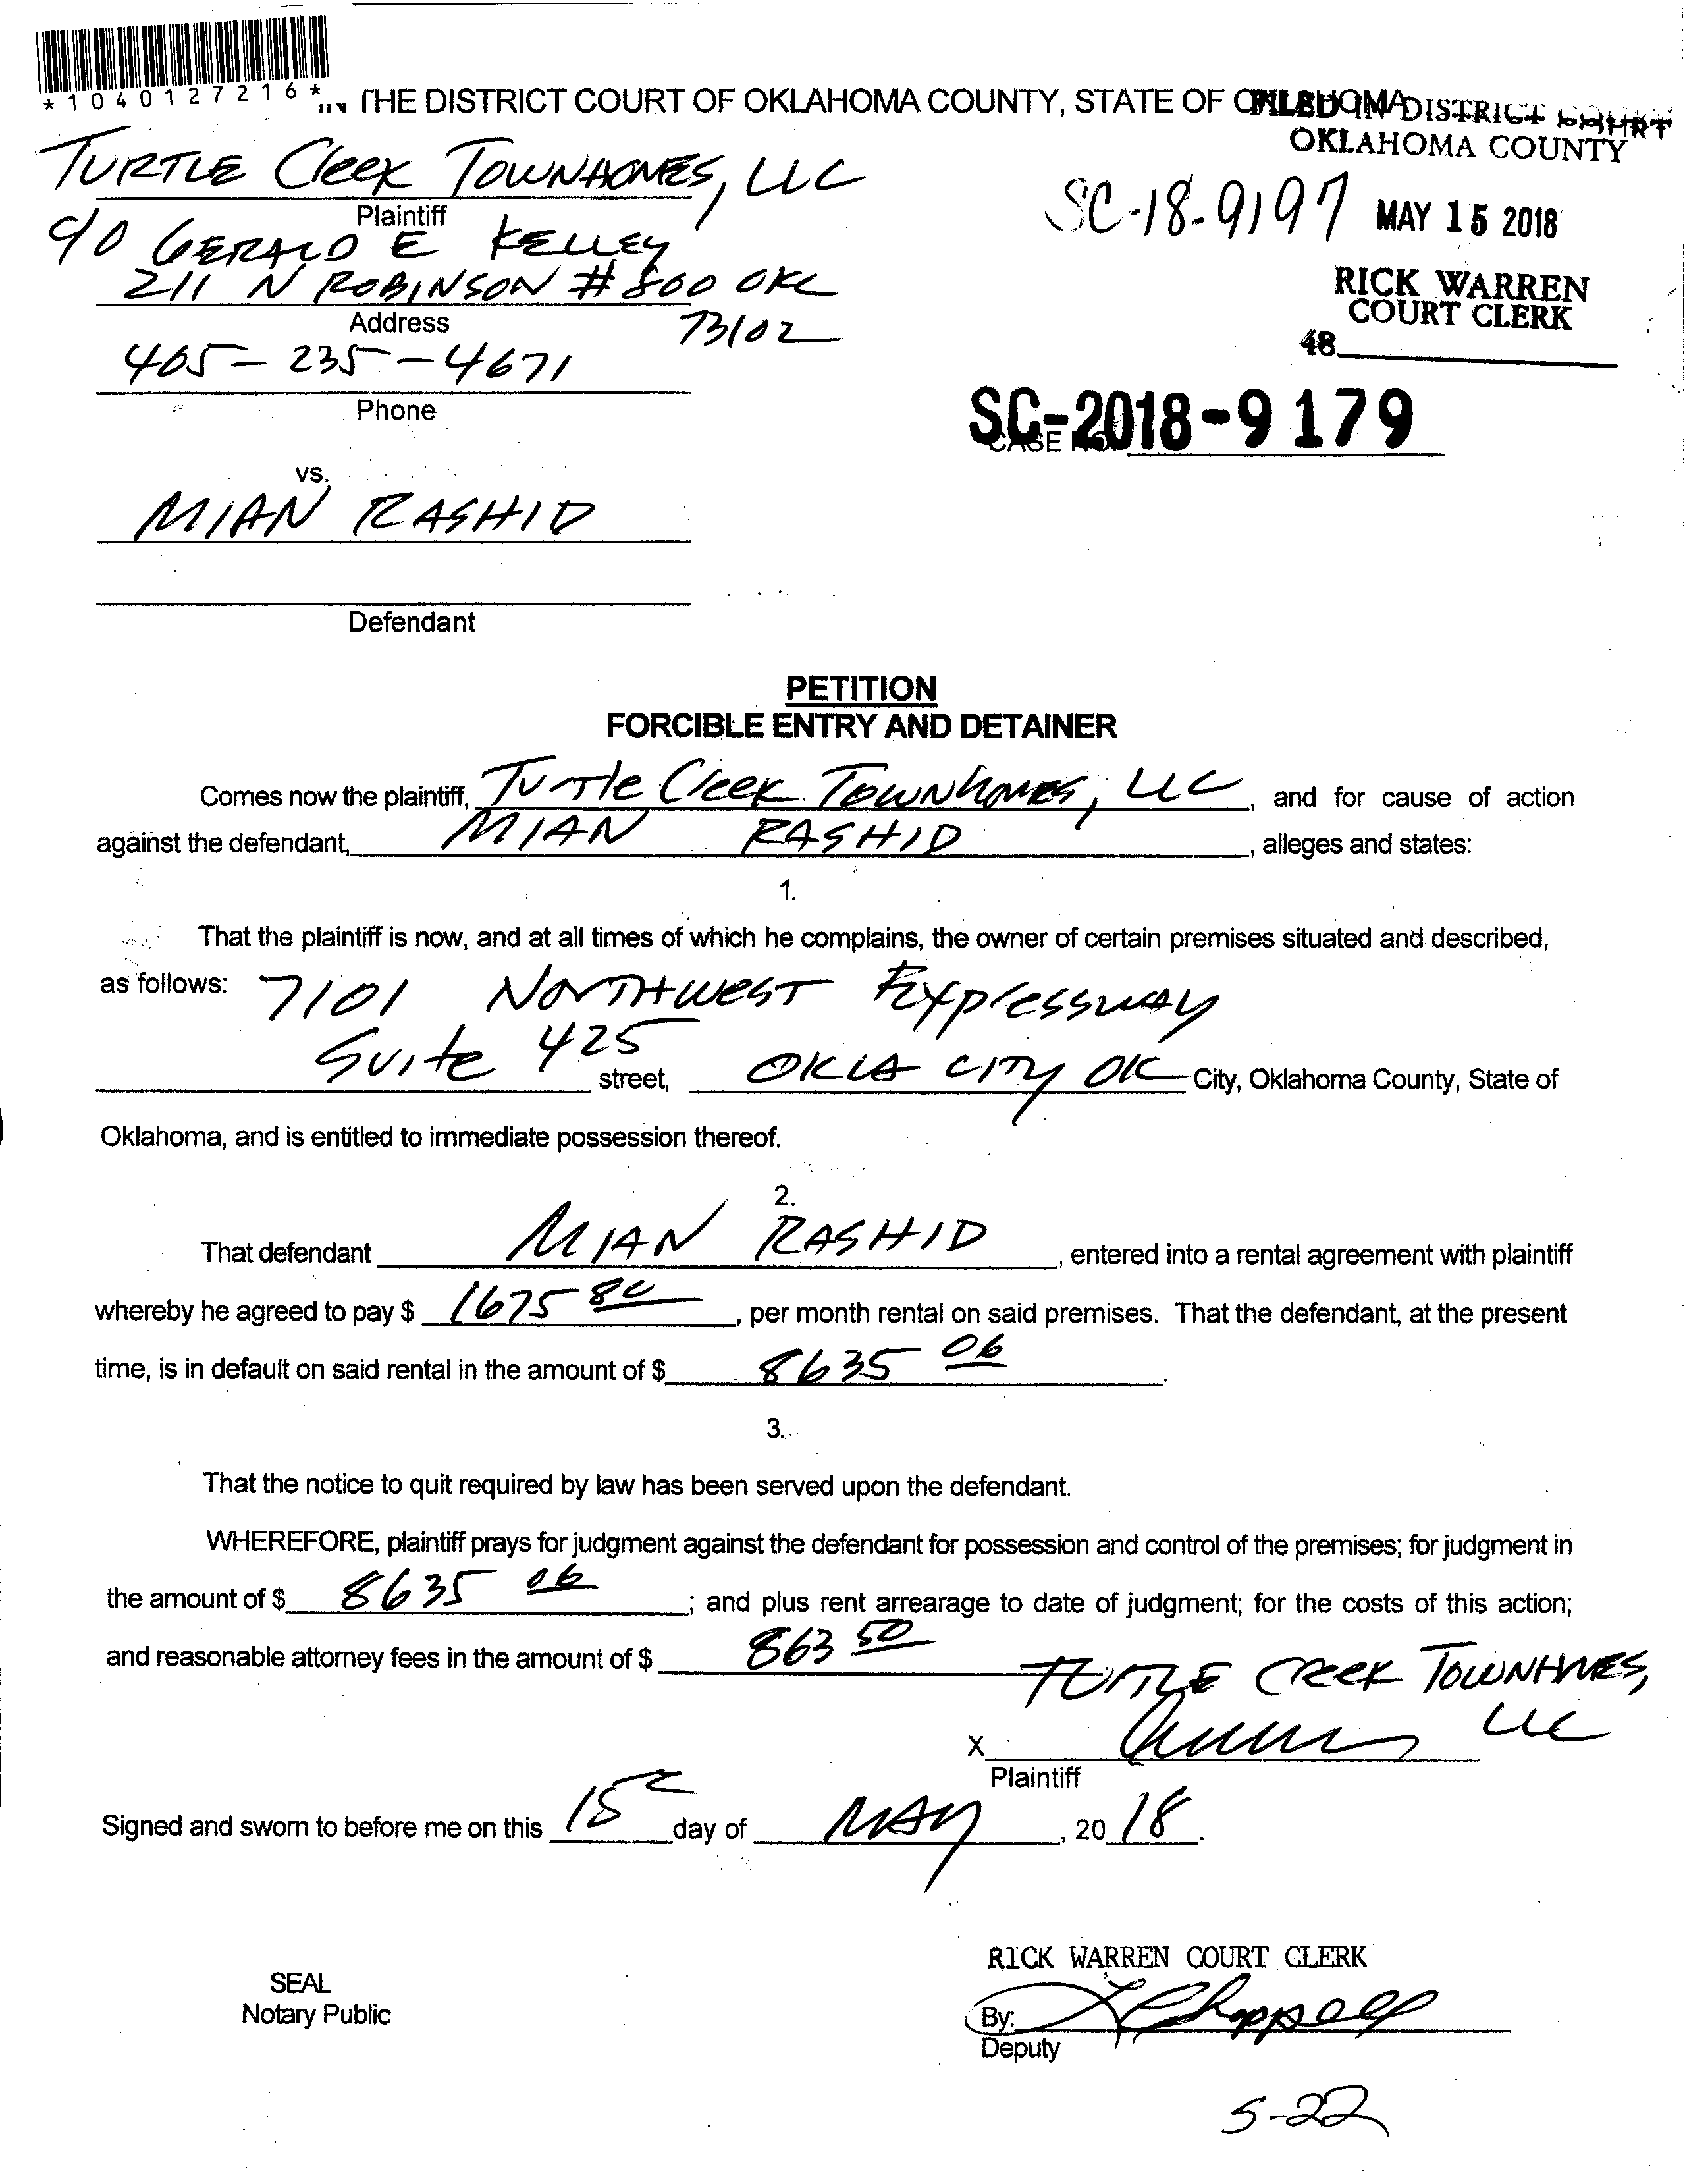 *1040127216*
THE DISTRICT COURT OF OKLAHOMA COUNTY, STATE OF OKLAHOMA
FILED IN DISTRICT COURT
OKLAHOMA COUNTY
TURTLE Creek TOWNHOMES, LLC
Plaintiff
SC-18-9197 MAY 15 2018
c/o GERALD E KELLEY
211 N ROBINSON # 800 OKC
RICK WARREN
COURT CLERK
Address
73102
48
405-235-4671
Phone
SC-2018-9179
CASE NO.
vs.
MIAN RASHID
Defendant
PETITION
FORCIBLE ENTRY AND DETAINER
Comes now the plaintiff, Turtle Creek Townhomes, LLC, and for cause of action
against the defendant, MIAN RASHID, alleges and states:
1.
That the plaintiff is now, and at all times of which he complains, the owner of certain premises situated and described,
as follows: 7101 NorTHwesT Expressway
Suite 425 street, OKLA CITY OK City, Oklahoma County, State of
Oklahoma, and is entitled to immediate possession thereof.
2.
That defendant MIAN RASHID, entered into a rental agreement with plaintiff
whereby he agreed to pay $ 1675 80, per month rental on said premises. That the defendant, at the present
time, is in default on said rental in the amount of $ 8635 06.
3.
That the notice to quit required by law has been served upon the defendant.
WHEREFORE, plaintiff prays for judgment against the defendant for possession and control of the premises; for judgment in
the amount of $ 8635 06; and plus rent arrearage to date of judgment; for the costs of this action;
and reasonable attorney fees in the amount of $ 863 50
TURTLE CReek TOWNHOMES,
LLC
X
Plaintiff
Signed and sworn to before me on this 15 day of MAY, 20 18.
RICK WARREN COURT CLERK
SEAL
Notary Public
By: Chappell
Deputy
5-22